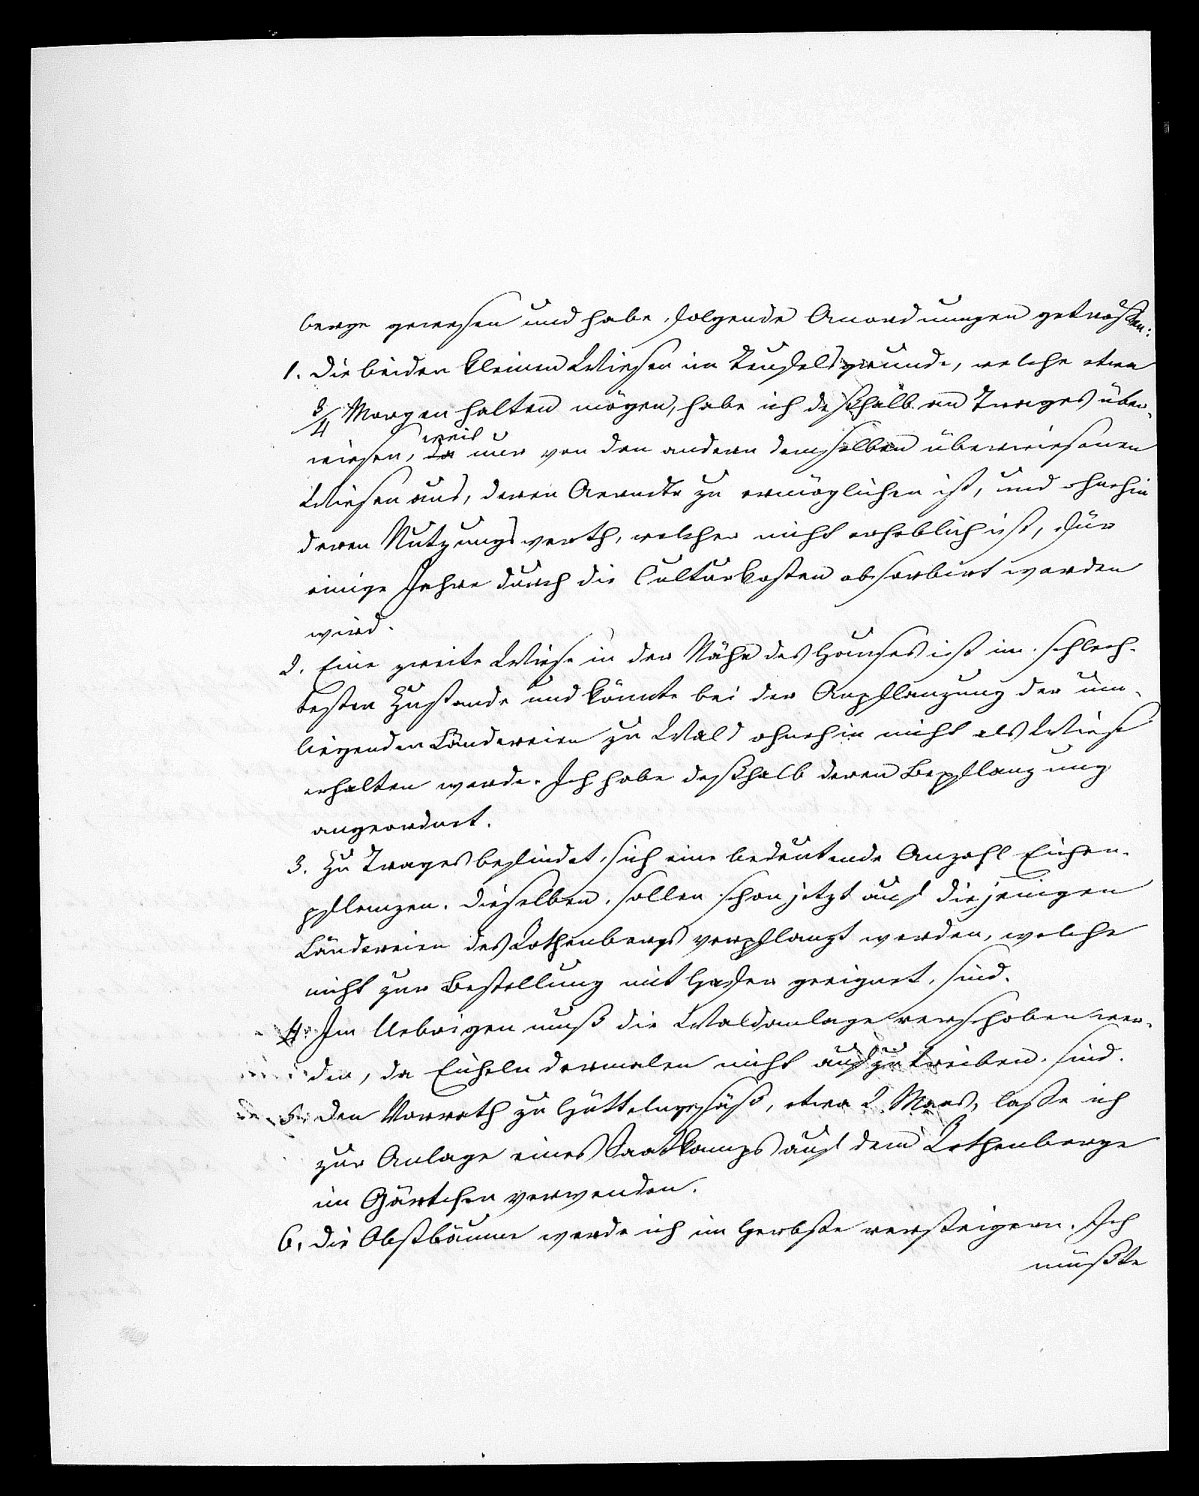 berge gewesen und habe folgende Anordnungen getroffen:
1. Die beiden kleinen Wiesen im Teufelsgrunde, welche etwa
3/4 Morgen halten mögen, habe ich deßhalb an Trages über-
wiesen, weil nur von den andern demselben überwiesenen
Wiesen aus, deren Aerndte zu ermöglichen ist, und ohnehin
deren Nutzungswerth, welcher nicht erheblich ist, für
einige Jahre durch die Culturkosten absorbirt werden
wird.
2. Eine zweite Wiese in der Nähe des Hauses ist im schlech-
testen Zustande und könnte bei der Anpflanzung der um-
liegenden Ländereien zu Wald ohnehin nicht als Wiese
erhalten werde. Ich habe deßhalb deren Bepflanzung
angeordnet.
3. Zu Trages befindet sich eine bedeutende Anzahl Eichen-
pflanzen. Dieselben sollen schon jetzt auf diejenigen
Ländereien des Rothenbergs verpflanzt werden, welche
nicht zur Bestellung mit Hafer geeignet sind.
4. Im Uebrigen muß die Waldanlage verschoben wer-
den, da Eicheln dermalen nicht aufzutreiben sind.
5. Den Vorrath zu Hüttelngesäß, etwa 2 Maas, lasse ich
zur Anlage eines Saatkamps auf dem Rothenberge
im Gärtchen verwenden.
6. Die Obstbäume werde ich im Herbste versteigern. Ich
müßte